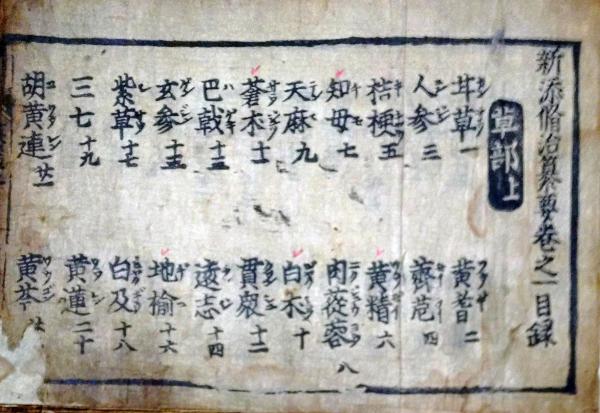 新添脩治纂要卷之一目録
草部上
甘草一 黄耆二
人参三 薺苨四
桔梗五 黄精六
知母七 肉蓯蓉八
天麻九 白朮十
蒼朮十一 貫衆十二
巴戟十三 遠志十四
玄参十五 地榆十六
紫草十七 白及十八
三七十九 黄連二十
胡黄連廿一 黄芩